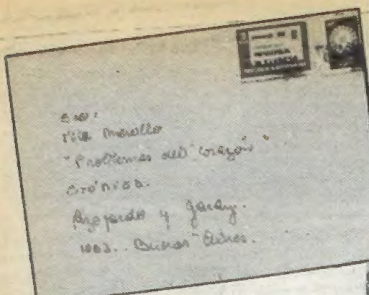 Sra:
Tita Merello
"Problemas del corazón".
Crónica.
Azopardo y Garay.
1063.. Buenos Aires.